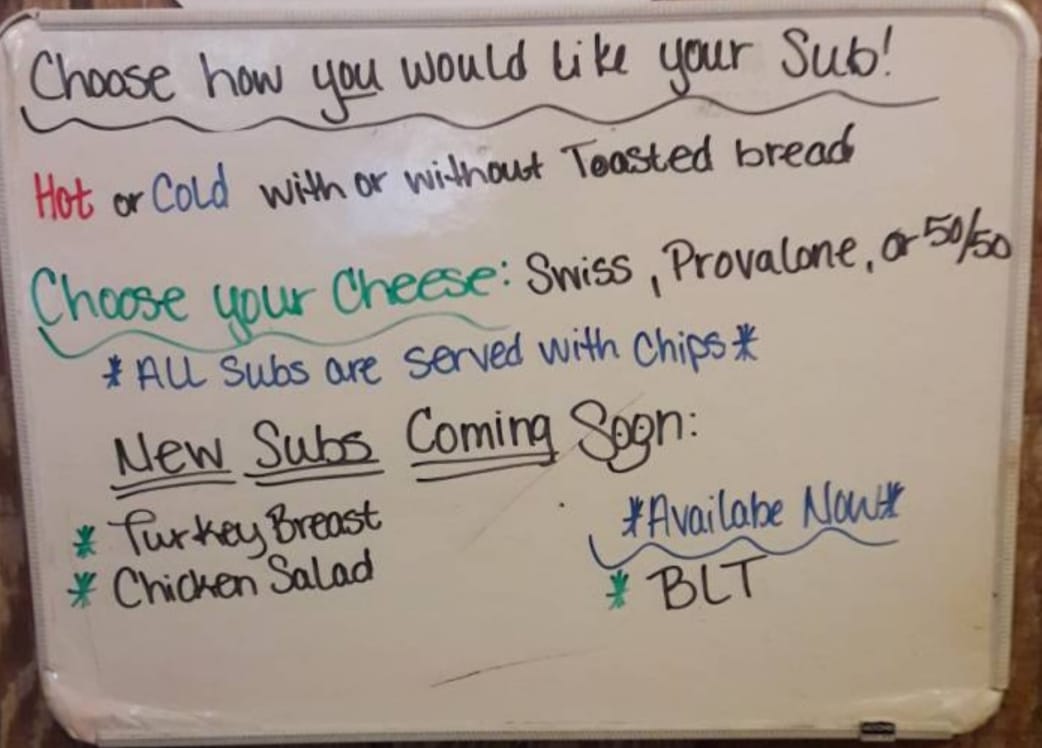 Choose how you would like your Sub!
Hot or Cold with or without Toasted bread
Choose your Cheese: Swiss, Provalone, or 50/50
*ALL Subs are served with Chips*
New Subs Coming Soon:
* Turkey Breast
* Chicken Salad
*Availabe Now*
* BLT